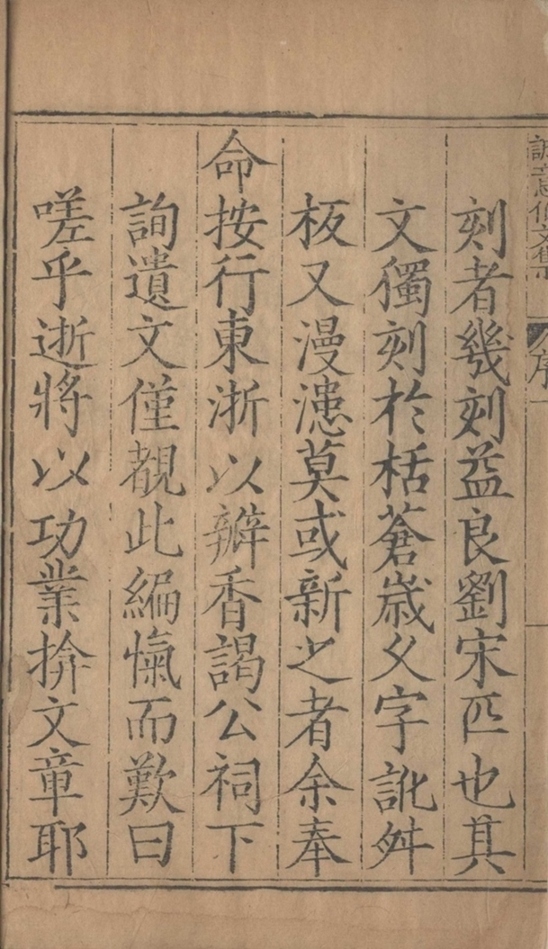 誠意伯文集
序
刻者幾刻益良劉宋匹也其
文獨刻於栝蒼歲久字訛舛
板又漫漶莫或新之者余奉
命按行東浙以瓣香謁公祠下
詢遺文僅覩此編愾而歎曰
嗟乎逝將以功業揜文章耶